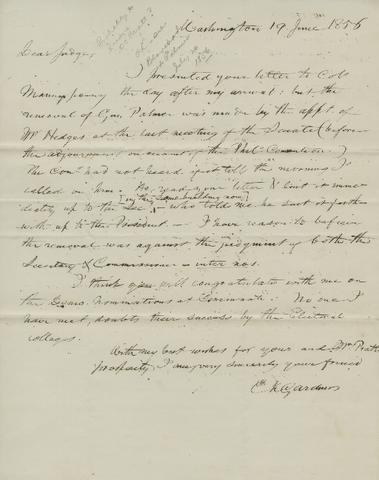 Washington 19 June 1856
Dear Judge,
I presented your letter to Col.
Manypenny the day after my arrival: but the
removal of Gen. Palmer was made by the appt. of
Mr Hedges at the last meeting of the Senate (before
the adjournment on account of the Phil. Convention.)
The Com. had not heard of it till the morning I
called on him. He read your letter & sent it imme-
diately up to the Sec. [in this same building now] - who told me he sent it forth-
with up to the President. - I have reason to believe
the removal was against the judgment of both the
Secretary & Commissioner - inter nos.
I think you will congratulate with me on
the Demo. nominations at Cincinnati: No one I
have met, doubts their success by the Electoral
colleges.
With my best wishes for your and Mrs Pratt's
prosperity, I am very sincerely your friend
Ch. K. Gardner